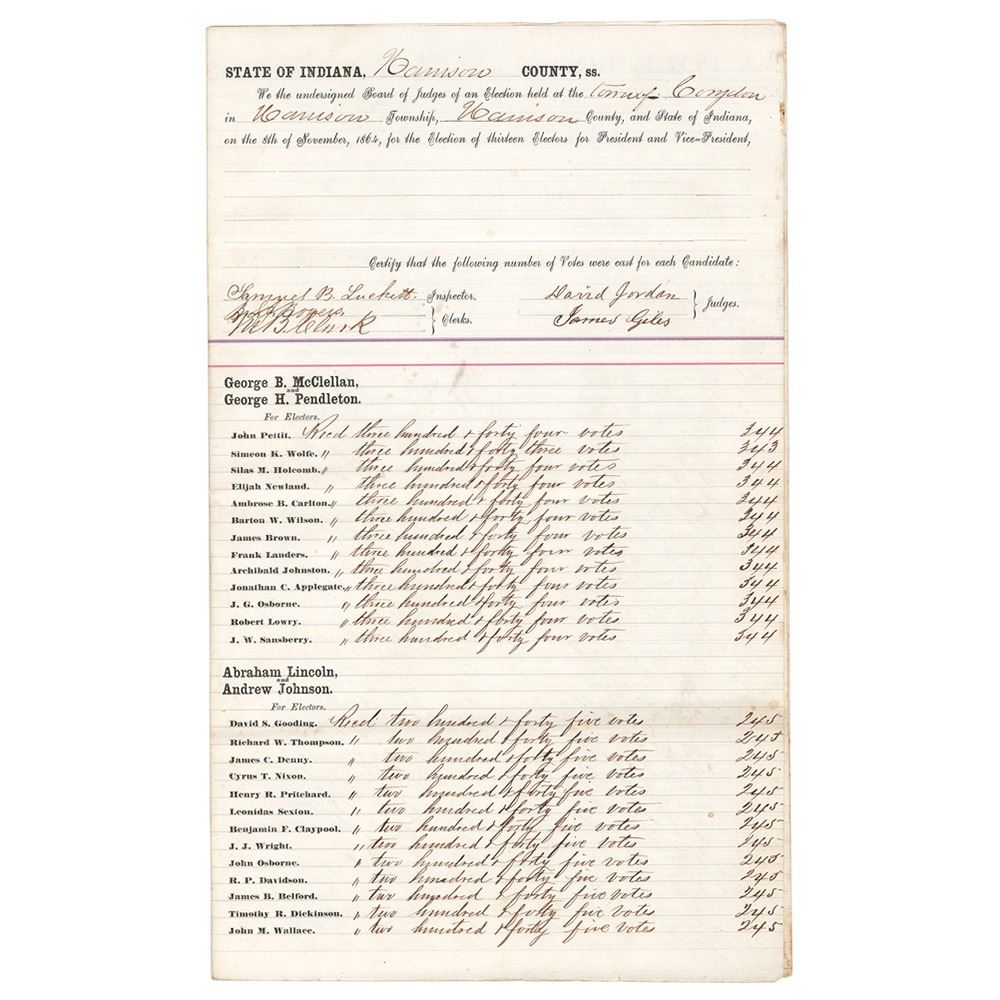 STATE OF INDIANA, Harrison COUNTY, ss.
We the undersigned Board of Judges of an Election held at the town of Corydon
in Harrison Township, Harrison County, and State of Indiana,
on the 8th of November, 1864, for the Election of thirteen Electors for President and Vice=President,
Certify that the following number of Votes were cast for each Candidate:
Samuel B. Luckett. Inspector. David Jordan
Bowers Clerks. James Giles Judges.
M B Clark
George B. McClellan,
and
George H. Pendleton.
For Electors.
John Pettit. Recd three hundred & forty four votes 344
Simeon K. Wolfe. " three hundred & forty three votes 343
Silas M. Holcomb. " three hundred & forty four votes 344
Elijah Newland. " three hundred & forty four votes 344
Ambrose B. Carlton. " three hundred & forty four votes 344
Barton W. Wilson. " three hundred & forty four votes 344
James Brown. " three hundred & forty four votes 344
Frank Landers. " three hundred & forty four votes 344
Archibald Johnston. " three hundred & forty four votes 344
Jonathan C. Applegate. " three hundred & forty four votes 344
J. G. Osborne. " three hundred & forty four votes 344
Robert Lowry. " three hundred & forty four votes 344
J. W. Sansberry. " three hundred & forty four votes 344
Abraham Lincoln,
and
Andrew Johnson.
For Electors.
David S. Gooding. Recd two hundred & forty five votes 245
Richard W. Thompson. " two hundred & forty five votes 245
James C. Denny. " two hundred & forty five votes 245
Cyrus T. Nixon. " two hundred & forty five votes 245
Henry R. Pritchard. " two hundred & forty five votes 245
Leonidas Sexton. " two hundred & forty five votes 245
Benjamin F. Claypool. " two hundred & forty five votes 245
J. J. Wright. " two hundred & forty five votes 245
John Osborne. " two hundred & forty five votes 245
R. P. Davidson. " two hundred & forty five votes 245
James B. Belford. " two hundred & forty five votes 245
Timothy R. Dickinson. " two hundred & forty five votes 245
John M. Wallace. " two hundred & forty five votes 245